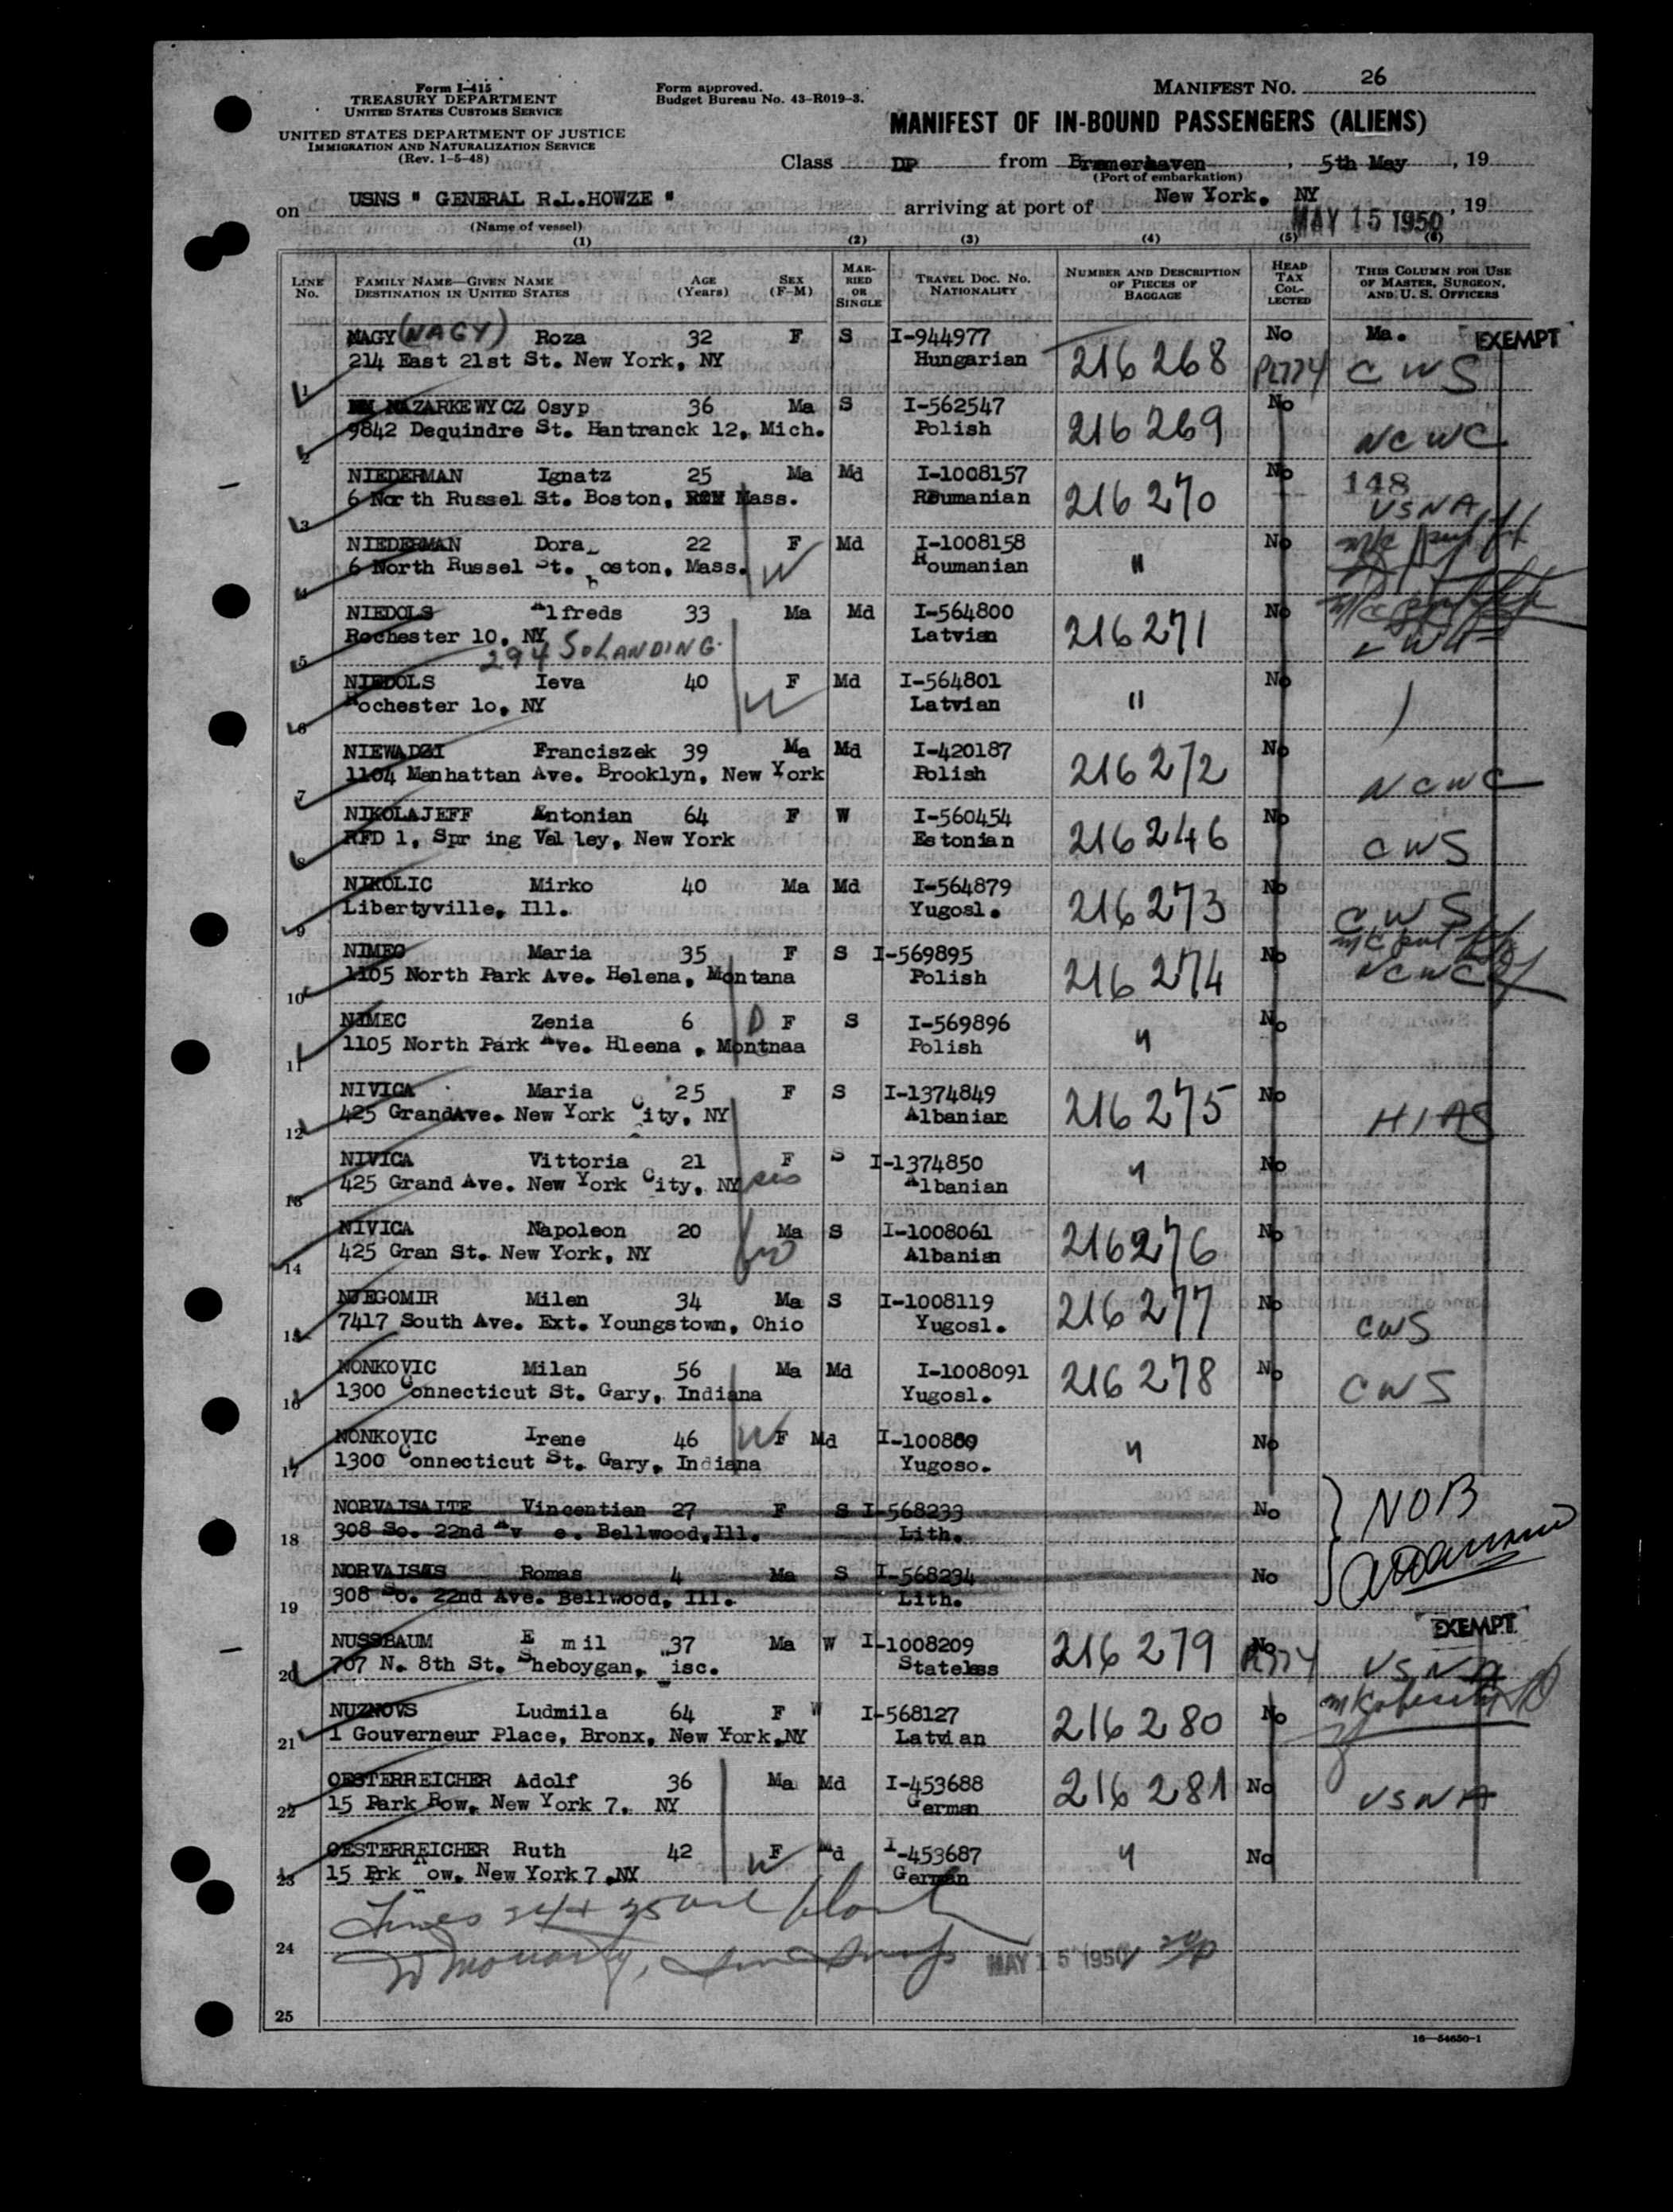 Form I-415
TREASURY DEPARTMENT
UNITED STATES CUSTOMS SERVICE
UNITED STATES DEPARTMENT OF JUSTICE
IMMIGRATION AND NATURALIZATION SERVICE
(Rev. 1-5-48)
Form approved.
Budget Bureau No. 43-R019-3.
MANIFEST NO. 26
MANIFEST OF IN-BOUND PASSENGERS (ALIENS)
Class DP from Bremerhaven, 5th May, 19
(Port of embarkation)
on USNS " GENERAL R.L.HOWZE " arriving at port of New York, NY, 19
MAY 15 1950
(Name of vessel)
(1) (2) (3) (4) (5) (6)
LINE No. FAMILY NAME—GIVEN NAME DESTINATION IN UNITED STATES AGE (Years) SEX (F-M) MARRIED OR SINGLE TRAVEL DOC. NO. NATIONALITY NUMBER AND DESCRIPTION OF PIECES OF BAGGAGE HEAD TAX COLLECTED THIS COLUMN FOR USE OF MASTER, SURGEON, AND U. S. OFFICERS
NAGY (NAGY) Roza 32 F S I-944977 No Ma. EXEMPT
1 214 East 21st St. New York, NY Hungarian 216268 CWS
NAZARKEWYCZ Osyp 36 Ma S I-562547 No
2 9842 Dequindre St. Hantranck 12, Mich. Polish 216269 NCWC
NIEDERMAN Ignatz 25 Ma Md I-1008157 No 148
3 6 Nor th Russel St. Boston, Mass. Roumanian 216270 USNA
NIEDERMAN Dora 22 F Md I-1008158 No
4 6 North Russel St. Boston, Mass. W Roumanian "
NIEDOLS Alfreds 33 Ma Md I-564800 No
5 Rochester 10, NY Latvian 216271
294 SOLANDING
NIEDOLS Ieva 40 F Md I-564801 No
6 Rochester 10, NY W Latvian "
NIEWADZI Franciszek 39 Ma Md I-420187 No
7 1104 Manhattan Ave. Brooklyn, New York Polish 216272 NCWC
NIKOLAJEFF Antonian 64 F W I-560454 No
8 RFD 1, Spr ing Val ley, New York Estonian 216246 CWS
NIKOLIC Mirko 40 Ma Md I-564879 No
9 Libertyville, Ill. Yugosl. 216273 CWS
NIMEC Maria 35 F S I-569895 No
10 1105 North Park Ave. Helena, Montana Polish 216274 NCWC
NIMEC Zenia 6 D F S I-569896 No
11 1105 North Park Ave. Hleena , Montnaa Polish "
NIVICA Maria 25 F S I-1374849 No
12 425 GrandAve. New York City, NY Albanian 216275 HIAS
NIVICA Vittoria 21 F S I-1374850 No
13 425 Grand Ave. New York City, NY sis Albanian "
NIVICA Napoleon 20 Ma S I-1008061 No
14 425 Gran St. New York, NY Albanian 216276
NJEGOMIR Milen 34 Ma S I-1008119 No
15 7417 South Ave. Ext. Youngstown, Ohio Yugosl. 216277 CWS
NONKOVIC Milan 56 Ma Md I-1008091 No
16 1300 Connecticut St. Gary, Indiana Yugosl. 216278 CWS
NONKOVIC Irene 46 W F Md No
17 1300 Connecticut St. Gary, Indiana Yugoso. "
NORVAISAITE Vincentian 27 F S I-568233 No
18 308 So. 22nd Av e. Bellwood,Ill. Lith. NOB
NORVAISAS Romas 4 Ma S I-568234 No
19 308 So. 22nd Ave. Bellwood, Ill. Lith.
NUSSBAUM E mil 37 Ma W I-1008209 No EXEMPT
20 707 N. 8th St. Sheboygan, Wisc. Stateless 216279 USNA
NUZNOVS Ludmila 64 F W I-568127 No
21 1 Gouverneur Place, Bronx, New York,NY Latvian 216280
OESTERREICHER Adolf 36 Ma Md I-453688 No
22 15 Park Row, New York 7, NY German 216281 USNA
OESTERREICHER Ruth 42 F Md I-453687 No
23 15 Prk Row, New York 7,NY W German "
Lines 24 + 25 are blank
24 MAY 15 1950
25
16—54650-1